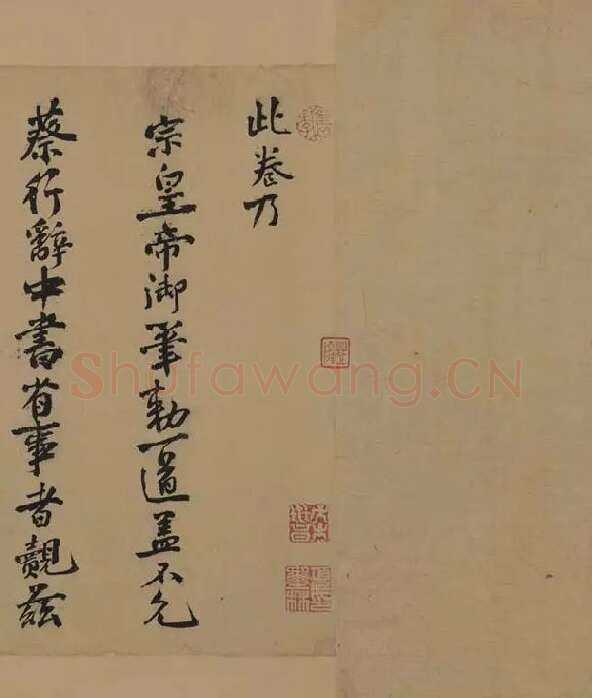 此卷乃
宗皇帝御筆勅一道蓋不允
蔡行辭中書省事者觀茲
Shufawang.CN